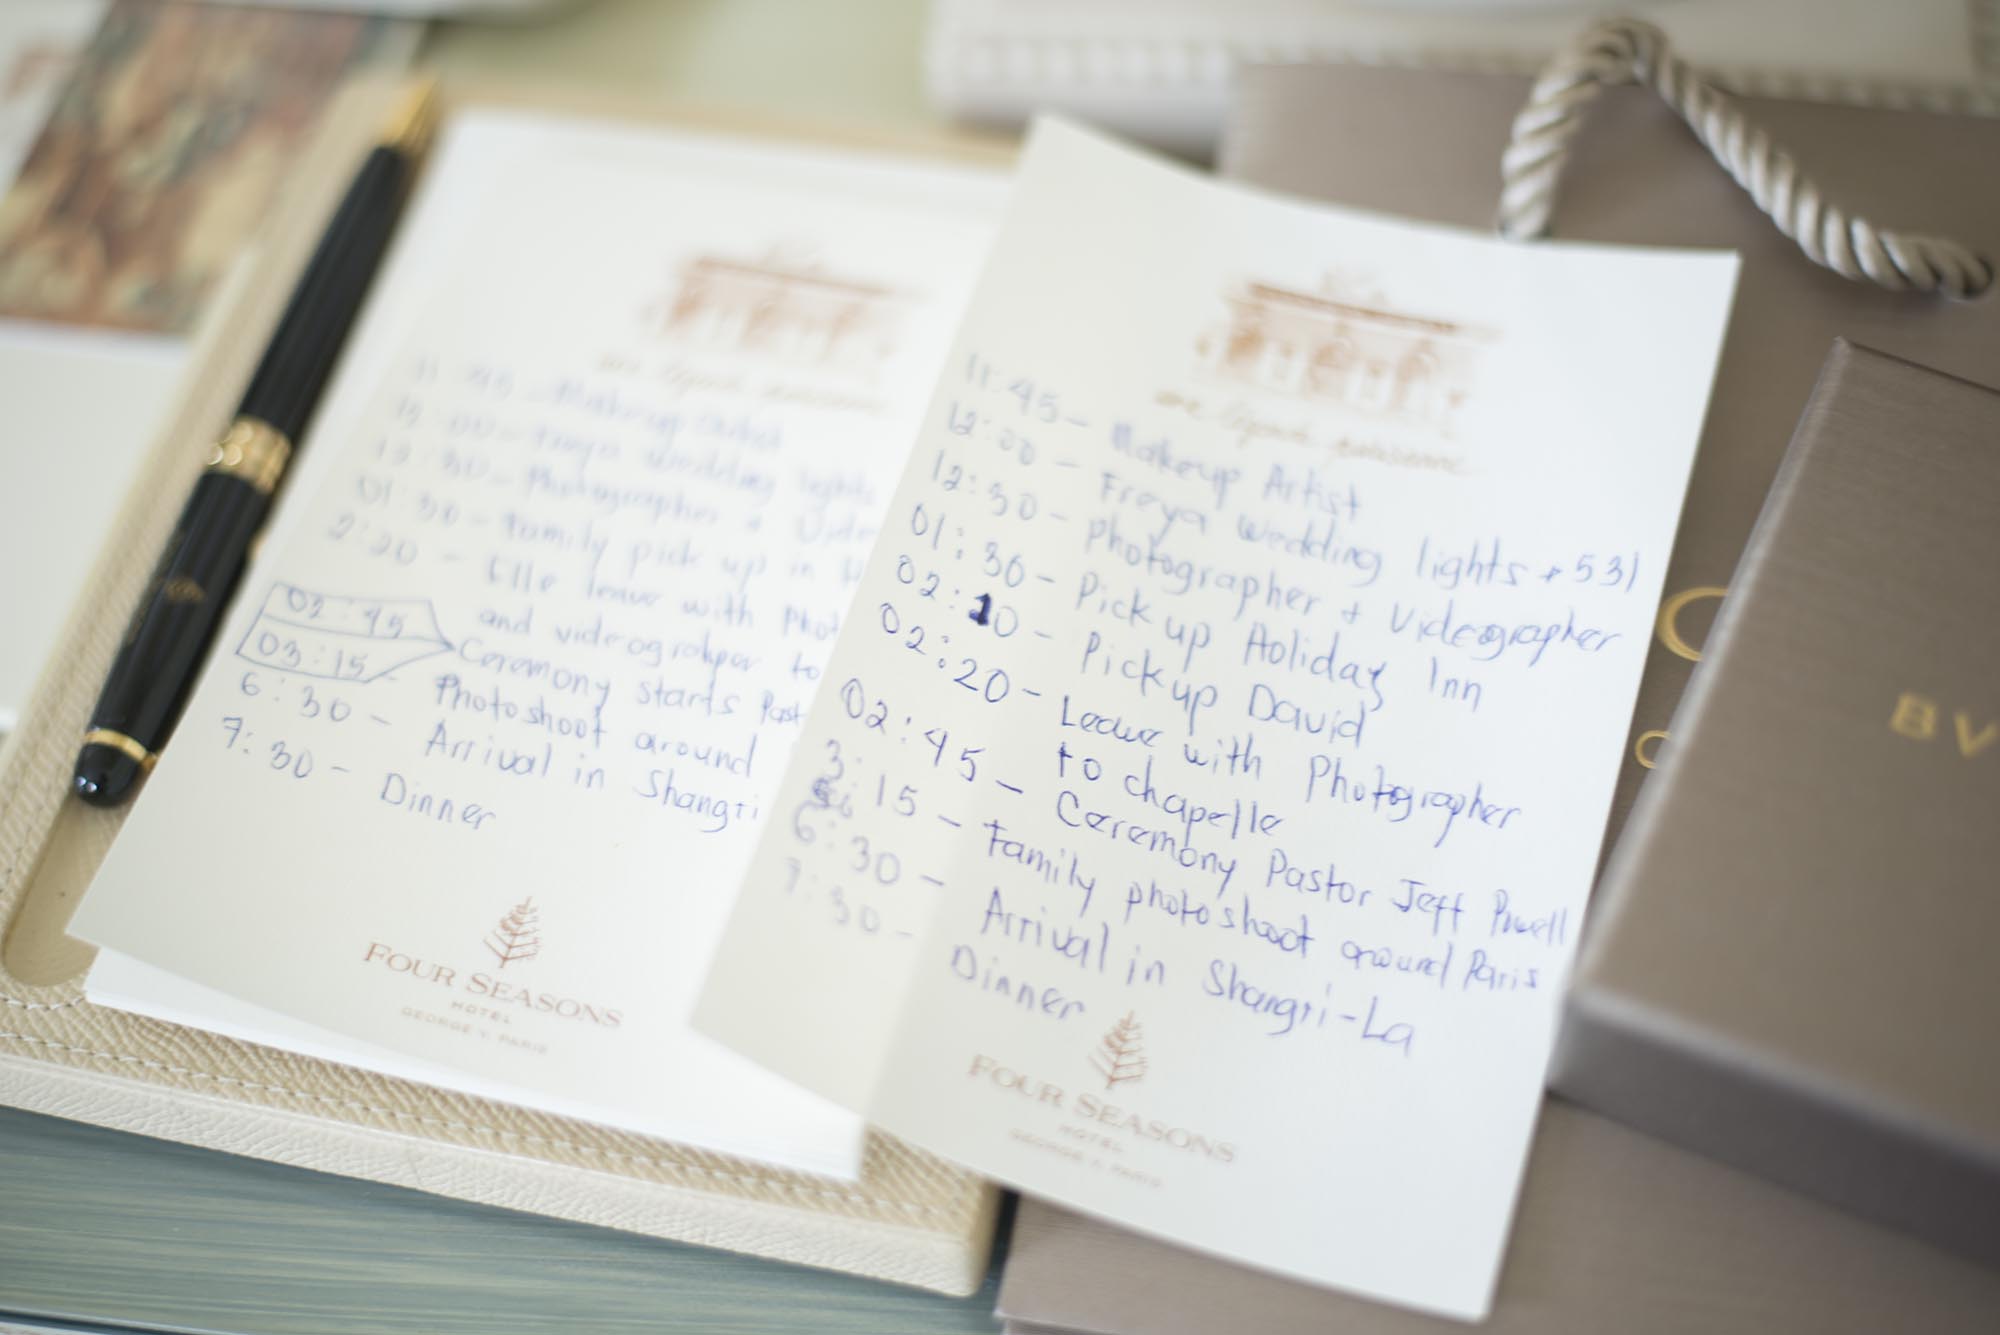 11:45 - Makeup Artist
12:00 - Freya wedding lights
12:30 - Photographer + Video
01:30 - Family pick up in H
2:20 - Elle leave with Phot
and videographer to
02:45
Ceremony starts Past
03:15 - Photoshoot around
6:30 - Arrival in Shangri
7:30 - Dinner
FOUR SEASONS
HOTEL
GEORGE V, PARIS
11:45 - Makeup Artist
12:00 - Freya Wedding lights + 531
12:30 - Photographer + Videographer
01:30 - Pick up Holiday Inn
02:10 - Pick up David
02:20 - Leave with Photographer
to chapelle
02:45 - Ceremony Pastor Jeff Powell
3:15 - Family photoshoot around Paris
6:30 - Arrival in Shangri-La
7:30 - Dinner
FOUR SEASONS
HOTEL
GEORGE V, PARIS
BV